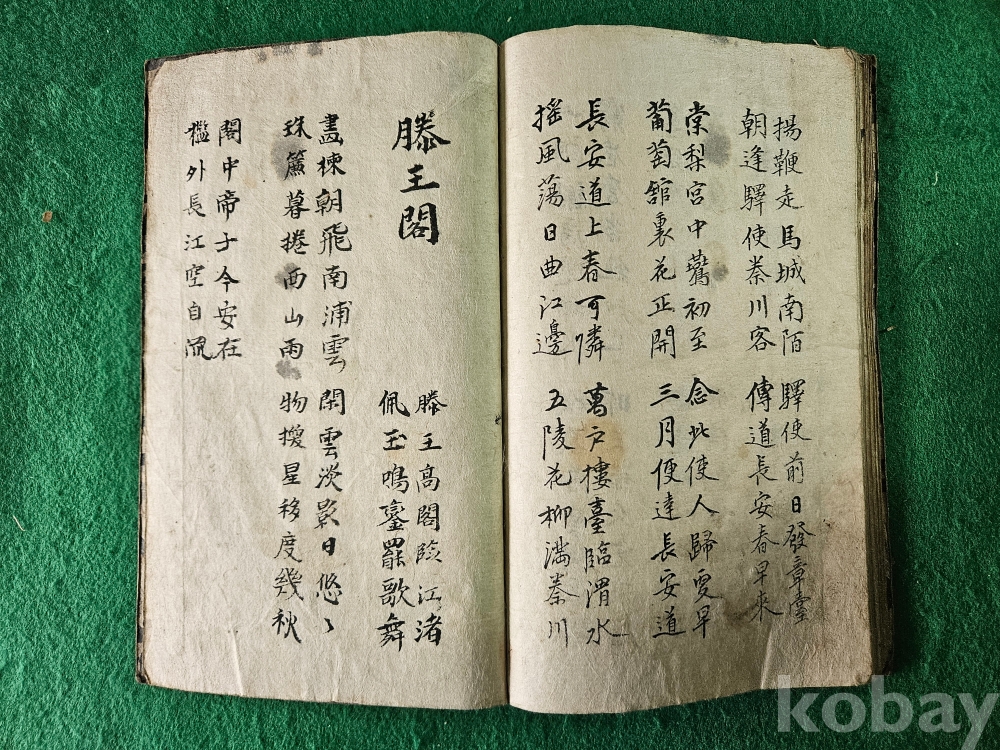 揚鞭走馬城南陌
朝逢驛使秦川客
驛使前日發章臺
傳道長安春早來
棠梨宮中鷰初至
葡萄舘裏花正開
念此使人歸更早
三月便達長安道
長安道上春可憐
搖風蕩日曲江邊
萬戶樓臺臨渭水
五陵花柳滿秦川
滕王閣
滕王高閣臨江渚
佩玉鳴鑾罷歌舞
畵棟朝飛南浦雲
珠簾暮捲西山雨
閑雲淡影日悠〻
物換星移度幾秋
閣中帝子今安在
檻外長江空自流
kobay